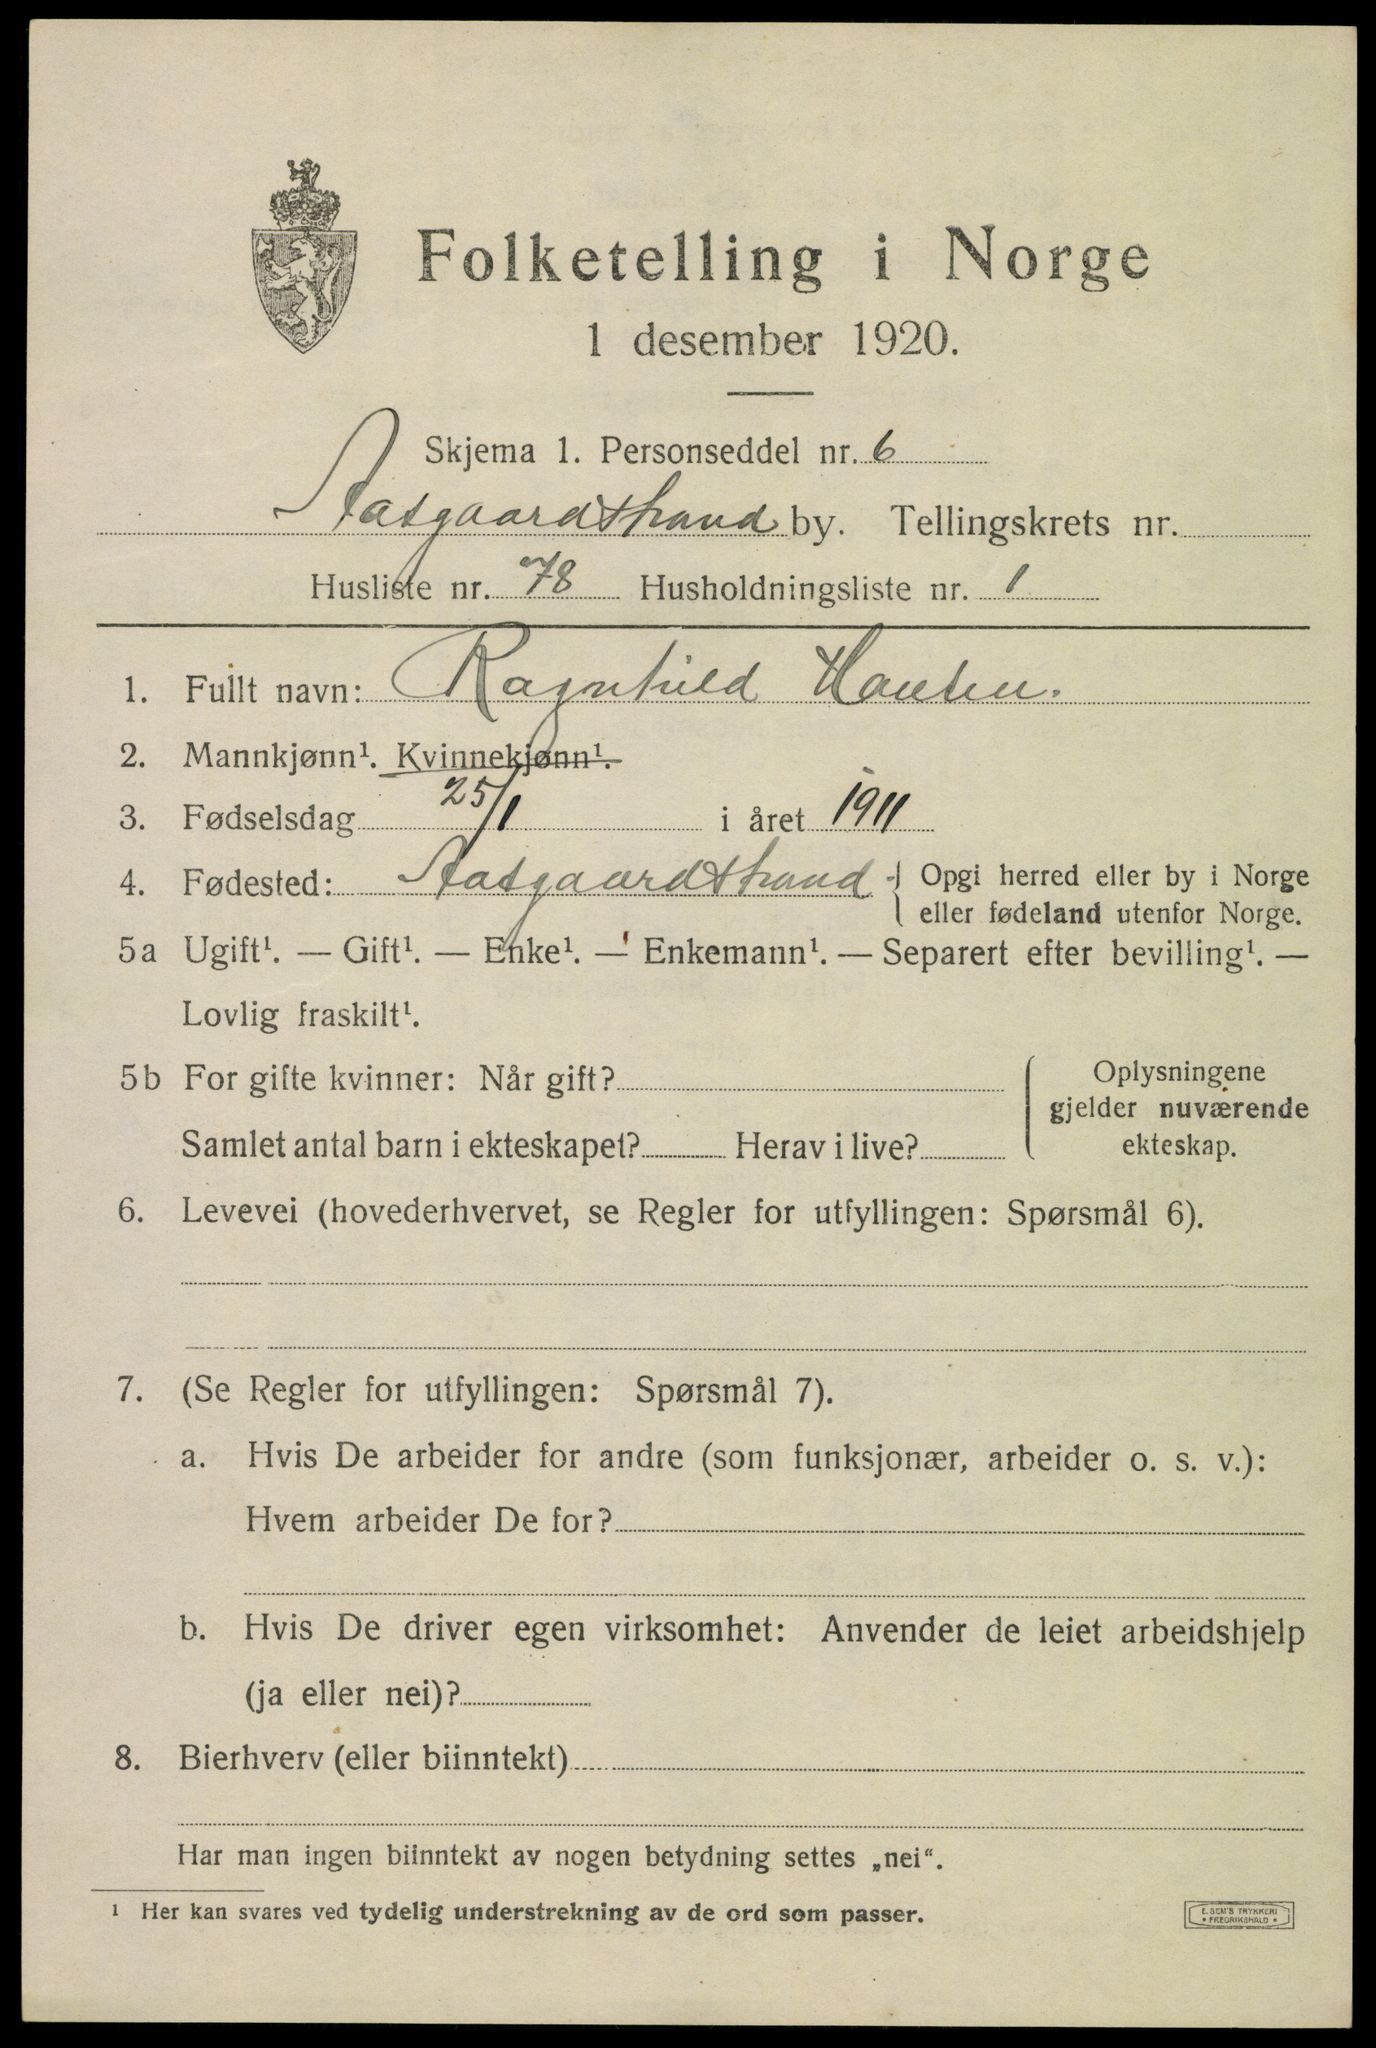 Folketelling i Norge
1 desember 1920.
Skjema 1. Personseddel nr. 6
Aasgaardstrand by. Tellingskrets nr.
Husliste nr. 78 Husholdningsliste nr. 1
1. Fullt navn: Ragnhild Hansen.
2. Mannkjønn¹. Kvinnekjønn¹.
3. Fødselsdag 25/1 i året 1911
4. Fødested: Aasgaardstrand { Opgi herred eller by i Norge
eller fødeland utenfor Norge.
5a Ugift¹. — Gift¹. — Enke¹. — Enkemann¹. — Separert efter bevilling¹. —
Lovlig fraskilt¹.
5b For gifte kvinner: Når gift?
Samlet antal barn i ekteskapet? Herav i live?
Oplysningene
gjelder nuværende
ekteskap.
6. Levevei (hovederhvervet, se Regler for utfyllingen: Spørsmål 6).
7. (Se Regler for utfyllingen: Spørsmål 7).
a. Hvis De arbeider for andre (som funksjonær, arbeider o. s. v.):
Hvem arbeider De for?
b. Hvis De driver egen virksomhet: Anvender de leiet arbeidshjelp
(ja eller nei)?
8. Bierhverv (eller biinntekt)
Har man ingen biinntekt av nogen betydning settes „nei“.
¹ Her kan svares ved tydelig understrekning av de ord som passer.
E. SEM'S TRYKKERI
* FREDRIKSHALD *